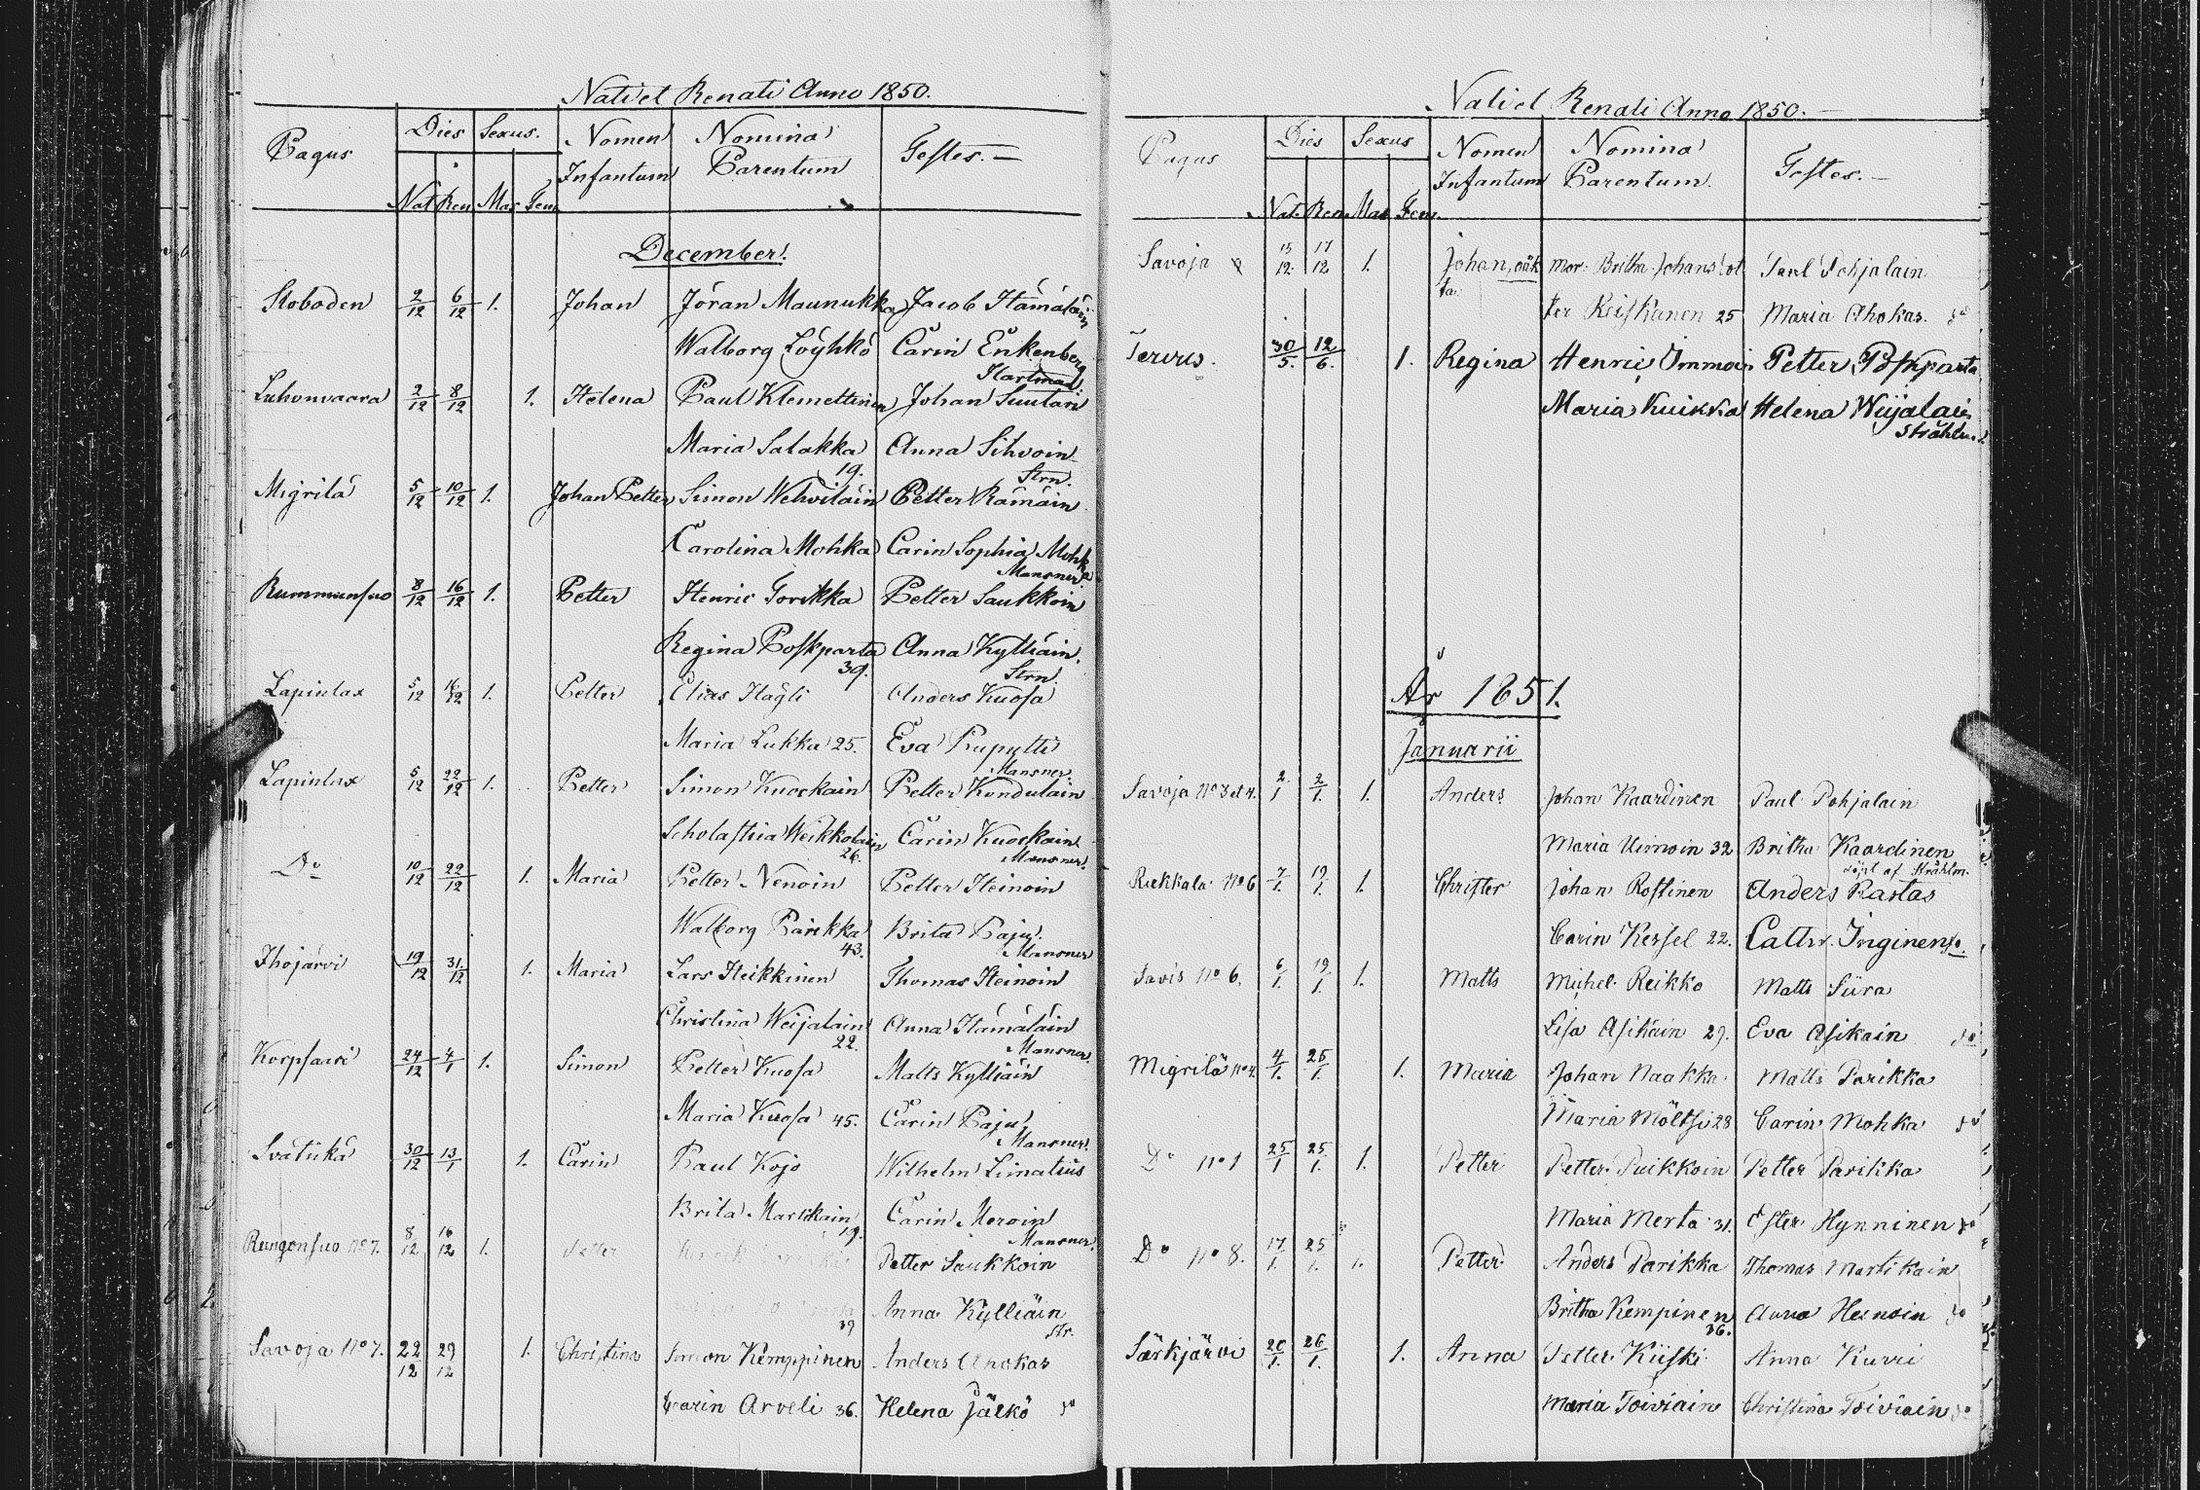 Nati et Renati Anno 1850.
Pagus Dies Sexus. Nomen Infantum Nomina Parentum Testes.
Nat. Ren. Mas. Fem.
December.
Koboden 2/12 6/12 1. Johan Jöran Maunukka Jacob Hämäläin
Walborg Löyhkö Carin Enkenberg
Hartman.
Luhonvaara 2/12 8/12 1. Helena Paul Klemettinen Johan Suutari
Maria Salakka 19. Anna Sihvoin
Strn.
Migrilä 5/12 10/12 1. Johan Petter Simon Wehviläin Petter Rämäin
Carolina Mohka Carin Sophia Mohka
Mansner.
Rummunsuo 8/12 16/12 1. Petter Henric Torikka Petter Saukkoin
Regina Poskparta 39. Anna Kylliäin.
Strn.
Lapinlax 5/12 16/12 1. Petter Elias Hägli Anders Kuosa
Maria Lukka 25. Eva Rupytti
Mansner.
Lapinlax 5/12 22/12 1. Petter Simon Kuockain Petter Kondulain
Scholastica Weikkolain 26. Carin Kuockain
Mansner.
Do 10/12 22/12 1. Maria Petter Nenoin Petter Heinoin
Walborg Parikka 43. Brita Paju.
Mansner
Ihojärvi 19/12 31/12 1. Maria Lars Heikkinen Thomas Heinoin
Christina Weijalain 22. Anna Hämäläin
Mansner.
Korpsaari 24/12 4/1 1. Simon Petter Kuosa Matts Kylliäin
Maria Kuosa 45. Carin Paju,
Mansner.
Svätükä 30/12 13/1 1. Carin Paul Kojo Wilhelm Limatius
Brita Marckain 19. Carin Meroin
Mansner.
Rungonsuo No 7. 8/12 16/12 1. Petter Petter Saukkoin
39 Anna Kylliäin
Str.
Savoja No 7. 22/12 29/12 1. Christina Simon Kemppinen Anders Ahokas
Carin Arveli 36. Helena Jälkö do
Nati et Renati Anno 1850.
Pagus Dies Sexus Nomen Infantum Nomina Parentum. Testes.
Nat. Ren. Mas Fem.
Savoja 15/12 17/12 1. Johan, oäkta Mor: Britha Johansdot Paul Pohjalain
ter Keiskanen 25 Maria Ahokas. do
Tervus. 30/5. 12/6. 1. Regina Henric Immoin Petter Poskparta
Maria Kuikka Helena Wiijalain
Ståhlm.
År 1851.
Januarii
Savoja No 3 et 4. 2/1 2/1. 1. Anders Johan Kaardinen Paul Pohjalain
Maria Uimoin 32 Britha Kaardinen
döpt af Stråhlm.
Riekkala No 6 7/1. 19/1. 1. Christer Johan Rostinen Anders Rastas
Carin Kessel 22. Cathr. Inginen do.
Savis No 6. 6/1. 19/1. 1. Matts Michel Reikko Matts Siira
Lisa Asikain 29. Eva Asikain do
Migrilä No 4. 4/1. 25/1. 1. Maria Johan Naakka Matts Parikka
Maria Möltsi 28 Carin Mohka do
Do No 1 25/1 25/1. 1. Petter Petter Puikkoin Petter Parikka
Maria Merta 31. Ester Hynninen do
Do No 8. 17/1. 25/1. 1. Petter Anders Parikka Thomas Martikain
Britha Kempinen 36. Anna Heinoin do
Särkjärvi 20/1. 26/1. 1. Anna Petter Kiiski Anna Kurri
Maria Toiviain Christina Toiviain do